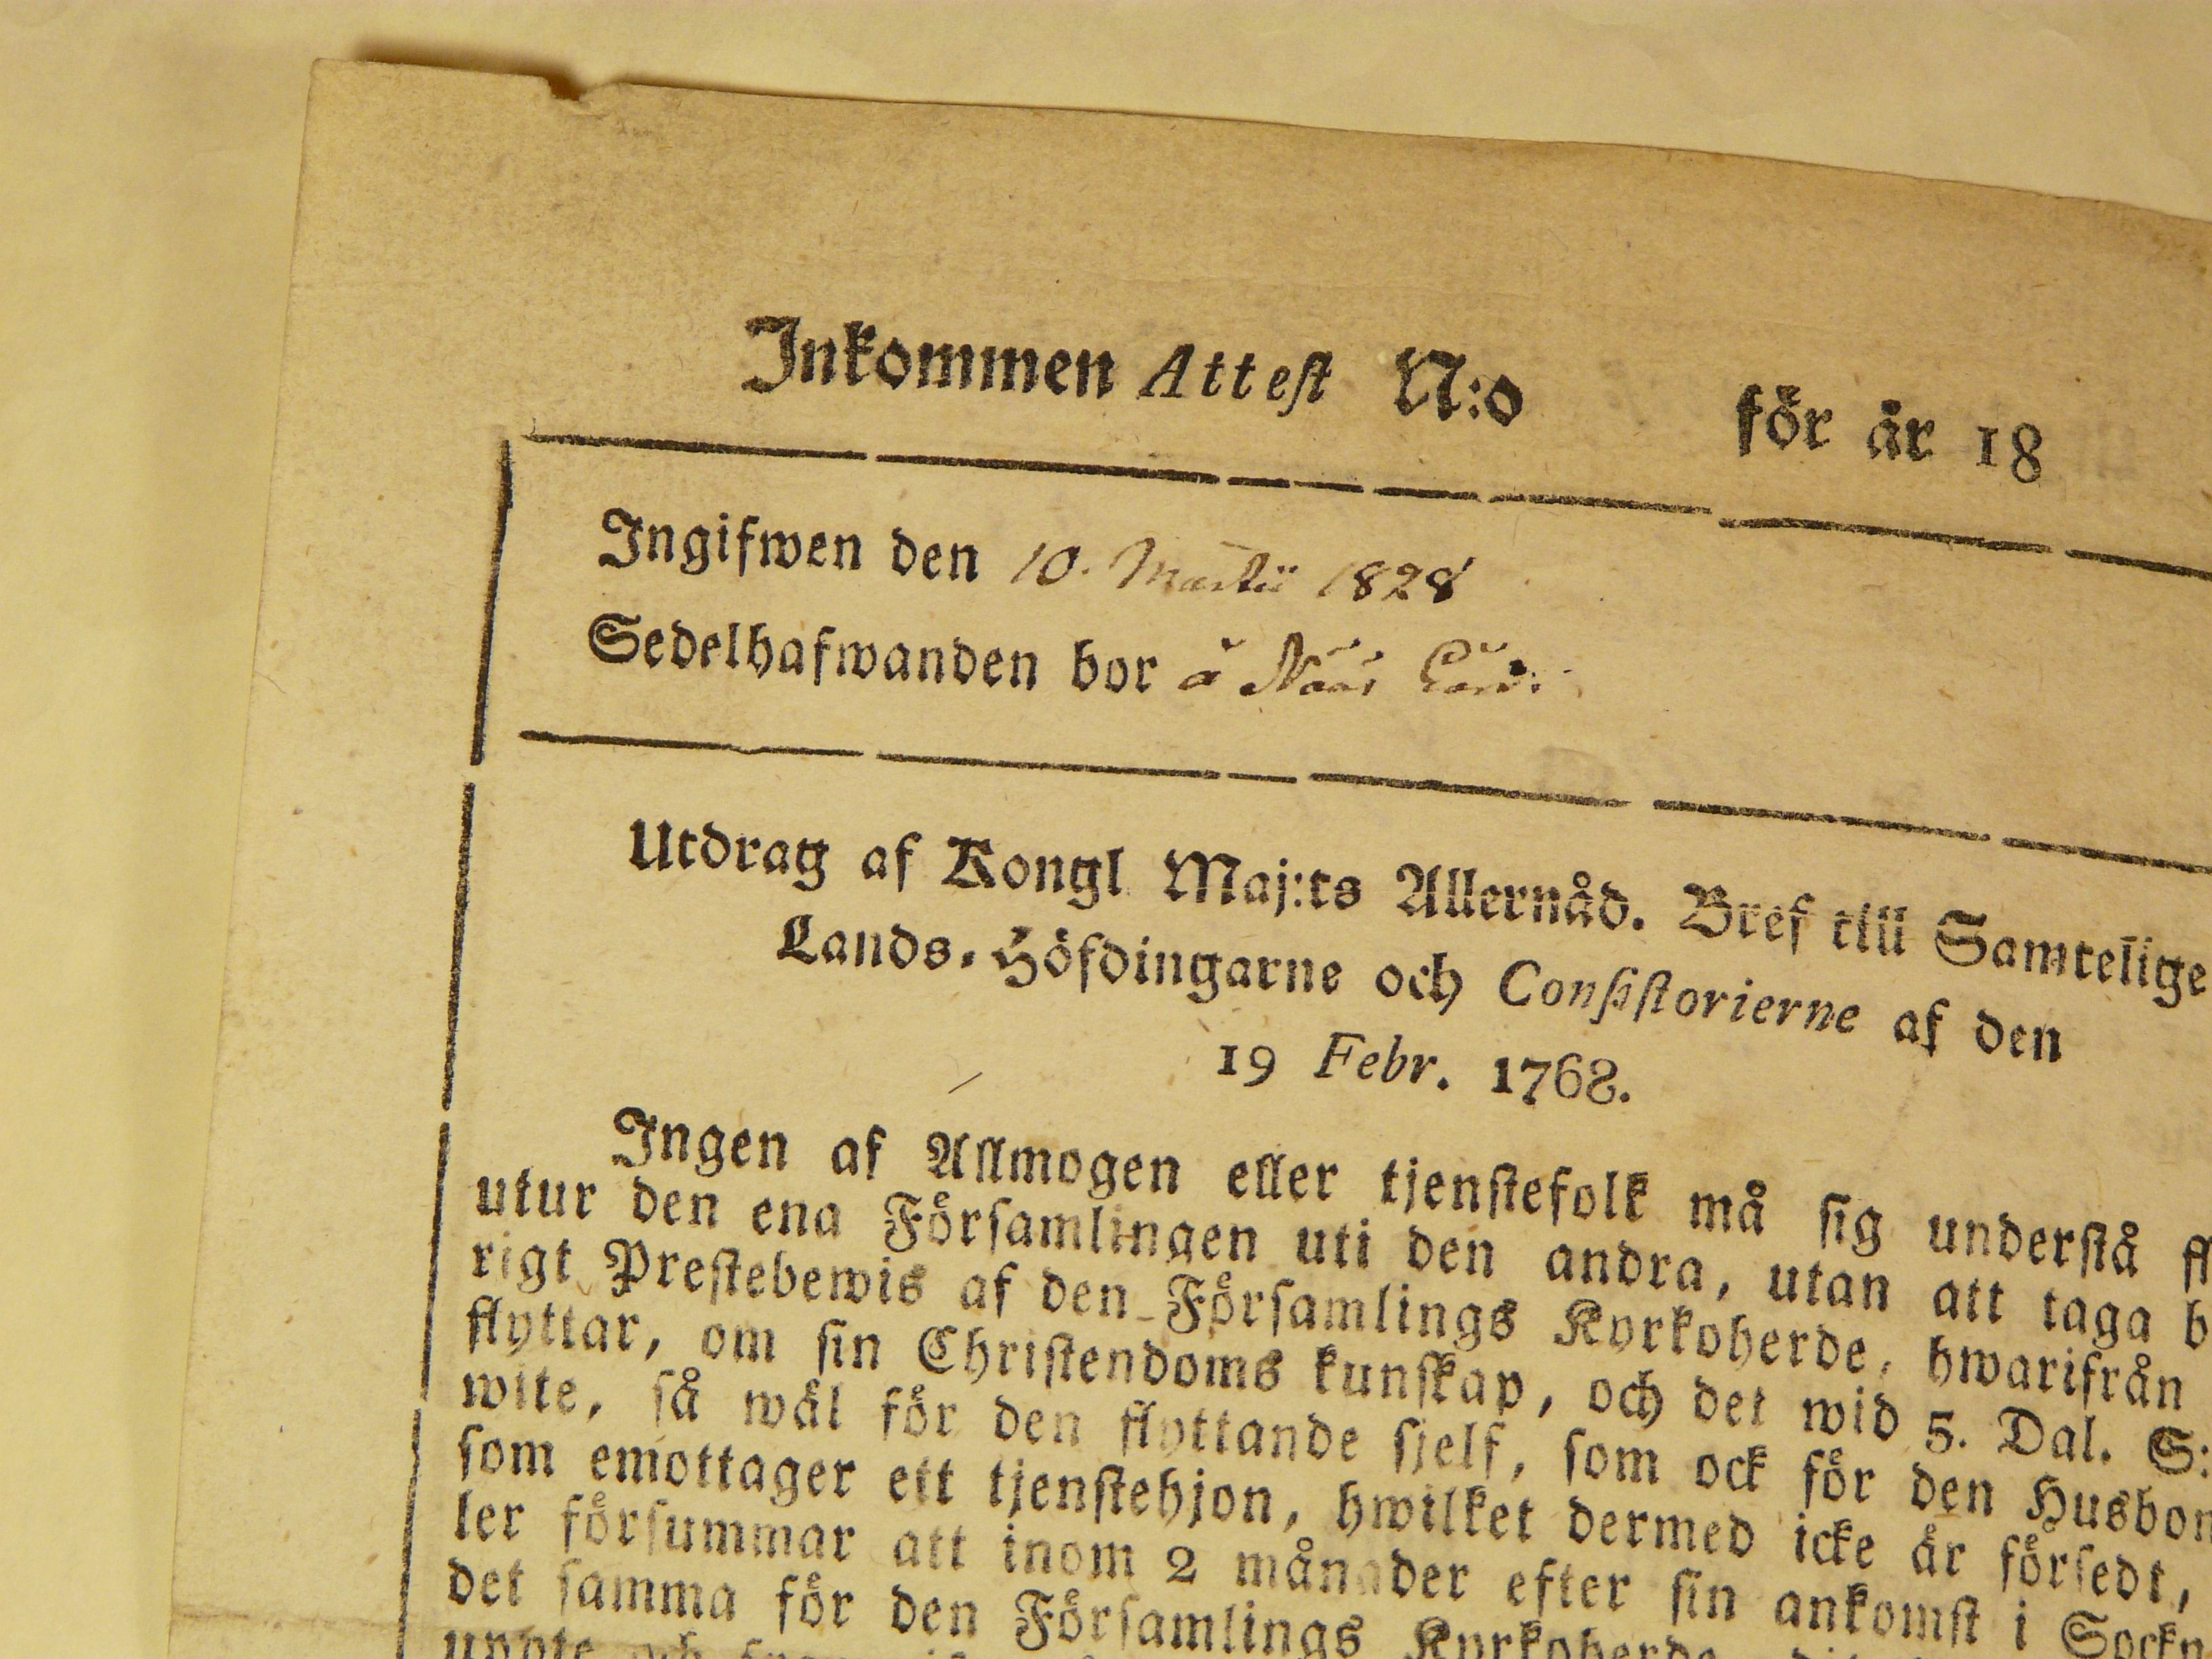 Inkommen Attest N:o för år 18
Ingifwen den 10. Martii 1828
Sedelhafwanden bor å Nääs
Utdrag af Kongl Maj:ts Allernåd. Bref till Samtelige
Lands-Höfdingarne och Consistorierne af den
19 Febr. 1768.
Ingen af Allmogen eller tjenstefolk må sig understå fl
utur den ena Församlingen uti den andra, utan att taga b
rigt Prestebewis af den Församlings Kyrkoherde, hwarifrån
flyttar, om sin Christendoms kunskap, och det wid 5. Dal. S:
wite, så wäl för den flyttande sjelf, som ock för den Husbon
som emottager ett tjenstehjon, hwilket dermed icke är försedt,
ler försummar att inom 2 månader efter sin ankomst i Sockn
det samma för den Församlings Kyrkoherde